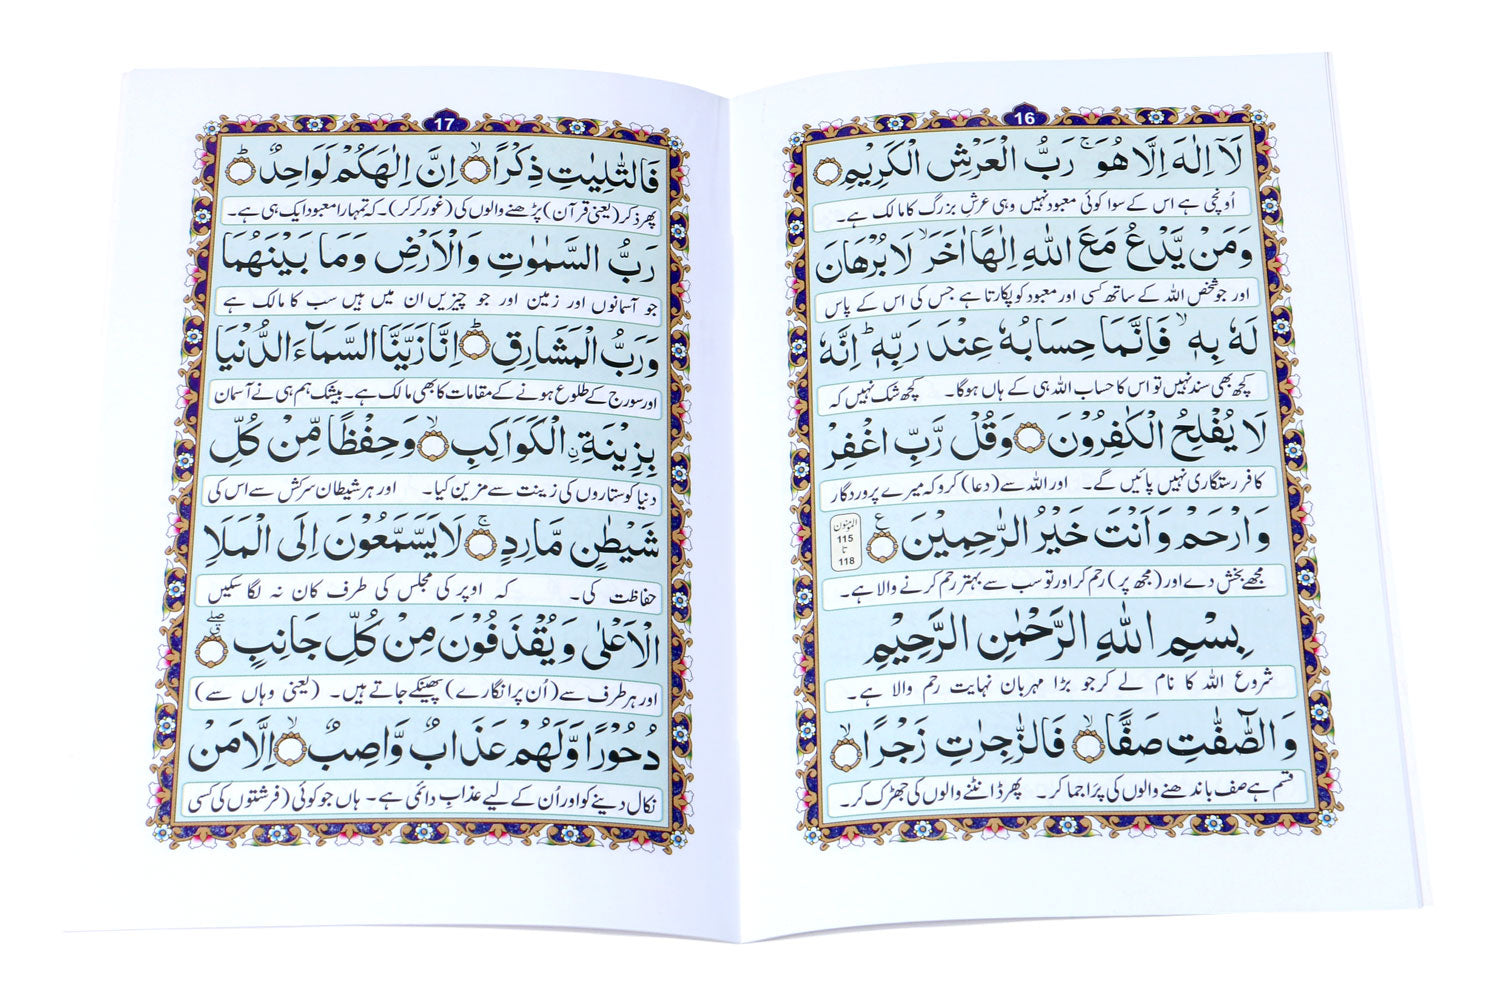 16
لَاۤ اِلٰهَ اِلَّا هُوَ ۚ رَبُّ الْعَرْشِ الْكَرِيْمِ
اُونچی ہے اس کے سوا کوئی معبود نہیں وہی عرشِ بزرگ کا مالک ہے۔
وَمَنْ يَّدْعُ مَعَ اللّٰهِ اِلٰهًا اٰخَرَ ۙ لَا بُرْهَانَ
اور جو شخص اللہ کے ساتھ کسی اور معبود کو پکارتا ہے جس کی اس کے پاس
لَهٗ بِهٖ ۙ فَاِنَّمَا حِسَابُهٗ عِنْدَ رَبِّهٖ ؕ اِنَّهٗ
کچھ بھی سند نہیں تو اس کا حساب اللہ ہی کے ہاں ہوگا۔ کچھ شک نہیں کہ
لَا يُفْلِحُ الْكٰفِرُوْنَ وَقُلْ رَّبِّ اغْفِرْ
کافر رستگاری نہیں پائیں گے۔ اور اللہ سے (دعا) کرو کہ میرے پروردگار
وَارْحَمْ وَاَنْتَ خَيْرُ الرّٰحِمِيْنَ ع
المؤمنون
115
تا
118
مجھے بخش دے اور (مجھ پر) رحم کر اور تو سب سے بہتر رحم کرنے والا ہے۔
بِسْمِ اللّٰهِ الرَّحْمٰنِ الرَّحِيْمِ
شروع اللہ کا نام لے کر جو بڑا مہربان نہایت رحم والا ہے۔
وَالصّٰٓفّٰتِ صَفًّا ۙ فَالزّٰجِرٰتِ زَجْرًا ۙ
قسم ہے صف باندھنے والوں کی پرّا جما کر۔ پھر ڈانٹنے والوں کی جھڑک کر۔
17
فَالتّٰلِيٰتِ ذِكْرًا ۙ اِنَّ اِلٰهَكُمْ لَوَاحِدٌ ؕ
پھر ذکر (یعنی قرآن) پڑھنے والوں کی (غور کر کر)۔ کہ تمہارا معبود ایک ہی ہے۔
رَبُّ السَّمٰوٰتِ وَالْاَرْضِ وَمَا بَيْنَهُمَا
جو آسمانوں اور زمین اور جو چیزیں ان میں ہیں سب کا مالک ہے
وَرَبُّ الْمَشَارِقِ ؕ اِنَّا زَيَّنَّا السَّمَآءَ الدُّنْيَا
اور سورج کے طلوع ہونے کے مقامات کا بھی مالک ہے۔ بیشک ہم ہی نے آسمان
بِزِيْنَةِ ۨ الْكَوَاكِبِ ۙ وَحِفْظًا مِّنْ كُلِّ
دنیا کو ستاروں کی زینت سے مزین کیا۔ اور ہر شیطان سرکش سے اس کی
شَيْطٰنٍ مَّارِدٍ ۚ لَا يَسَّمَّعُوْنَ اِلَى الْمَلَاِ
حفاظت کی۔ کہ اوپر کی مجلس کی طرف کان نہ لگا سکیں
الْاَعْلٰى وَيُقْذَفُوْنَ مِنْ كُلِّ جَانِبٍ
اور ہر طرف سے (اُن پر انگارے) پھینکے جاتے ہیں۔ (یعنی وہاں سے)
دُحُوْرًا وَّلَهُمْ عَذَابٌ وَّاصِبٌ ۙ اِلَّا مَنْ
نکال دینے کو اور اُن کے لیے عذابِ دائمی ہے۔ ہاں جو کوئی (فرشتوں کی کسی